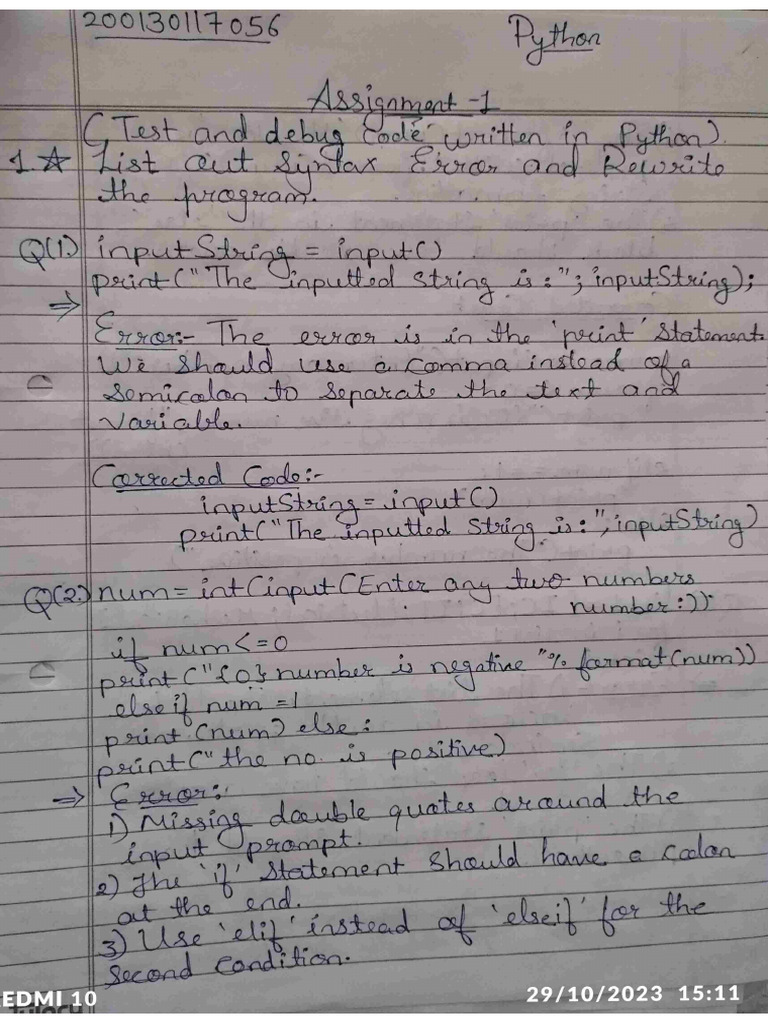 200130117056
Python
Assignment-1
(Test and debug code written in Python).
1.☆ List out Syntax Error and Rewrite
the program.
Q(1.) inputString = input()
print("The inputted string is:"; inputString);
⇒
Error:- The error is in the 'print' statement.
We should use a comma instead of a
Semicolon to separate the text and
variable.
Corrected Code:-
inputString = input()
print("The inputted string is:", inputString)
Q(2.) num = int(input(Enter any two numbers
number:))
if num <= 0
print("{0} number is negative "% format(num))
else if num =1
print(num) else:
print("the no. is positive)
⇒ Error:-
1) Missing double quotes around the
input prompt.
2) The 'if' Statement should have a colon
at the end.
3) Use 'elif' instead of 'elseif' for the
second condition.
EDMI 10
29/10/2023 15:11